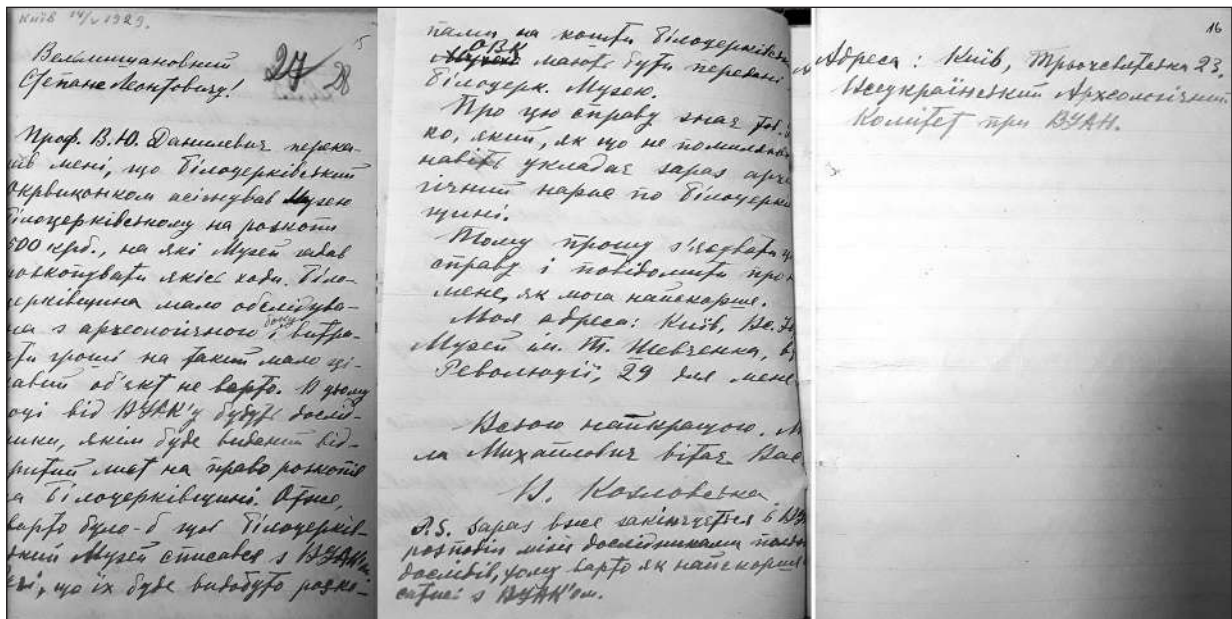 Київ 14/V 1929.
15
Вельмишановний
Степане Леонтовичу!
27
28
Проф. В.Ю. Данилевич перека-
зав мені, що Білоцерківський
окрвиконком асігнував Музею
Білоцерківському на розкопи
500 крб., на які Музей гадав
розкопувати якісь ходи. Біло-
церківщина мало обслідува-
на з археологічного боку і витра-
чати гроші на такий мало ці-
кавий об'єкт не варто. В цьому
році від ВУАК'у будуть дослід-
ники, яким буде виданий від-
критий лист на право розкопів
на Білоцерківщині. Отже,
варто було-б щоб Білоцерків-
ський Музей списався з ВУАК'ом
що їх буде видобуто розко-
пами на кошти Білоцерківськ
ОВК мають бути передані
Білоцерк. Музею.
Про цю справу знає
ко, який, як що не помиляюсь
навіть укладає зараз архе
гічний нарис по Білоцеркі
щині.
Тому прошу з'ясувати цю
справу і повідомити про
мене, як мога найскорше.
Моя адреса: Київ, Вс.
Музей ім. Т. Шевченка,
Революції, 29 для мене
Всього найкращого.
ла Михайлович вітає Вас
В. Козловська
P.S. Зараз вже закінчується в ВУ
розподіл між дослідниками
дослідів, чому варто як найскорше
сатись з ВУАК'ом.
16
Адреса: Київ, Трьохсвятська 23.
Всеукраїнський Археологічний
Комітет при ВУАН.